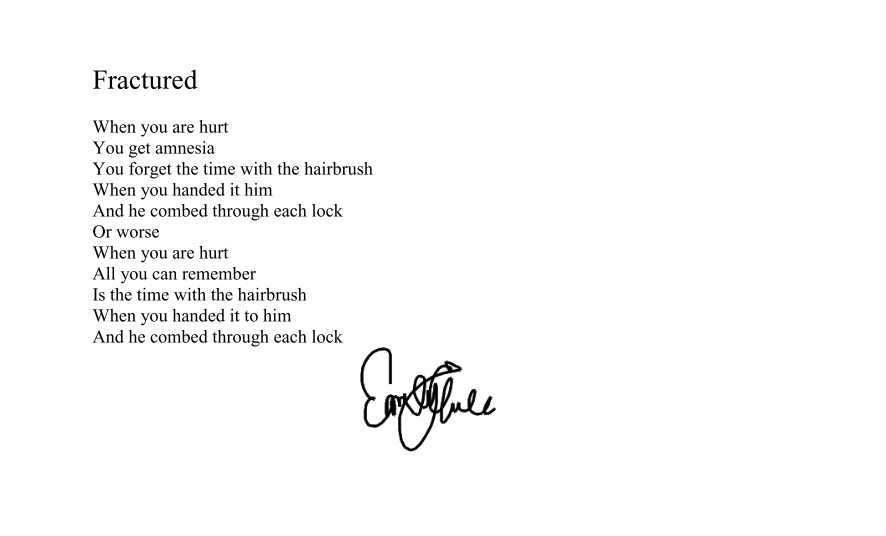 Fractured
When you are hurt
You get amnesia
You forget the time with the hairbrush
When you handed it him
And he combed through each lock
Or worse
When you are hurt
All you can remember
Is the time with the hairbrush
When you handed it to him
And he combed through each lock